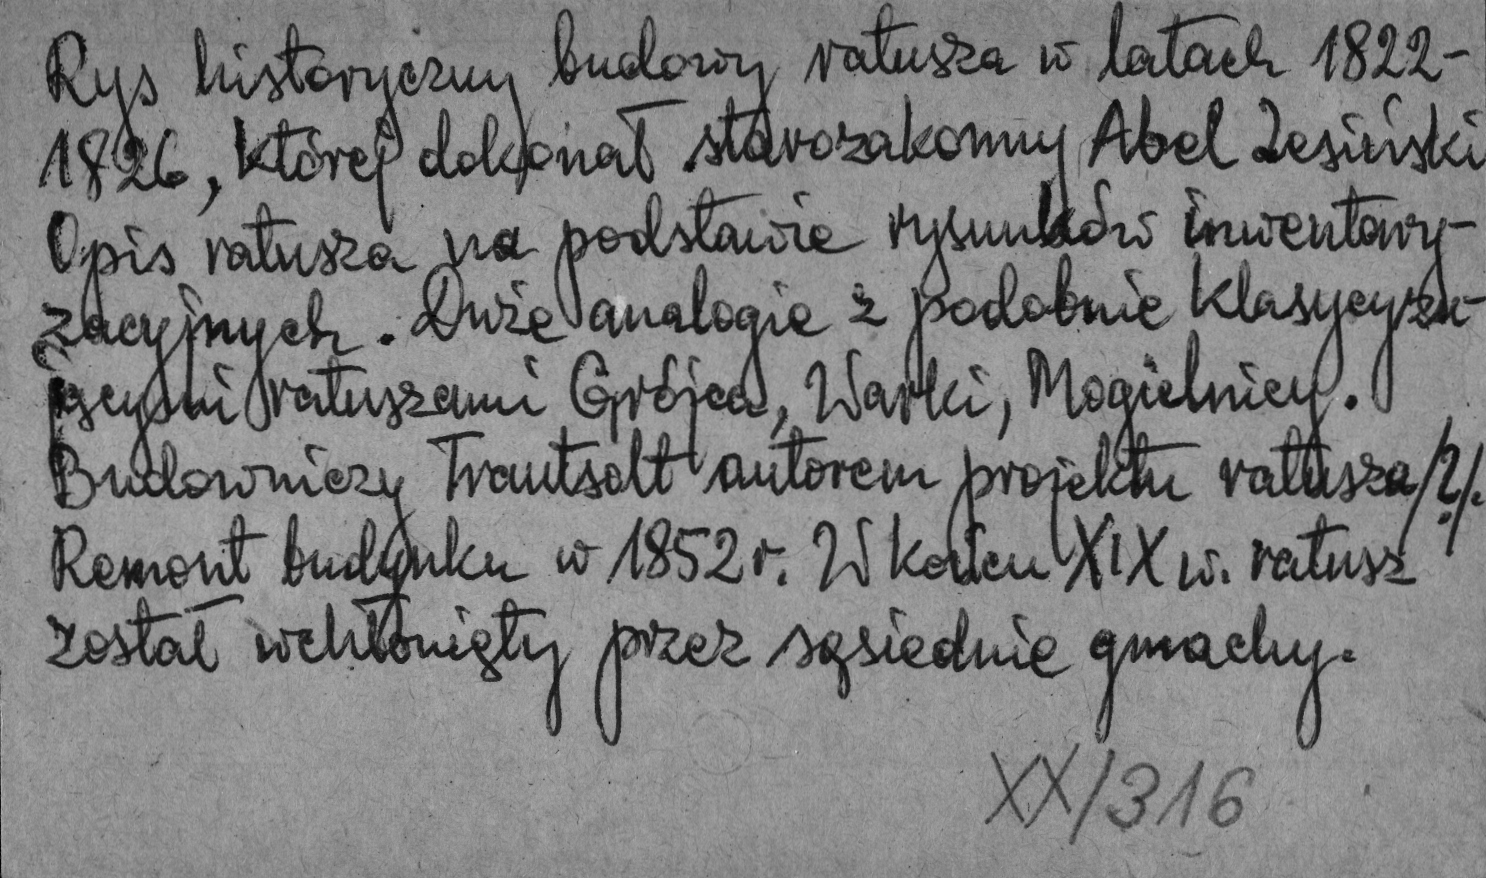 Rys historyczny budowy ratusza w latach 1822-
1826, której dokonał starozakonny Abel Lesiński
Opis ratusza na podstawie rysunków inwentary-
zacyjnych. Duże analogie z podobnie klasycyzu-
jącymi ratuszami Grójca, Warki, Mogielnicy.
Budowniczy Trautsolt autorem projektu ratusza /?/.
Remont budynku w 1852 r. W końcu XIX w. ratusz
został wchłonięty przez sąsiednie gmachy.
XX/316